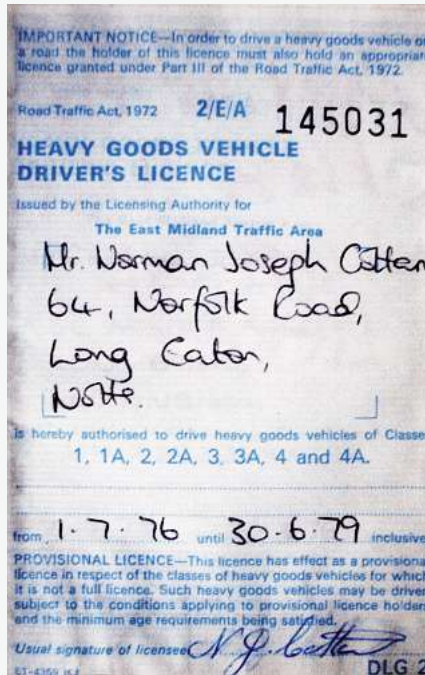 IMPORTANT NOTICE—In order to drive a heavy goods vehicle on
a road the holder of this licence must also hold an appropriate
licence granted under Part III of the Road Traffic Act, 1972.
Road Traffic Act, 1972 2/E/A 145031
HEAVY GOODS VEHICLE
DRIVER'S LICENCE
Issued by the Licensing Authority for
The East Midland Traffic Area
Mr. Norman Joseph Cotten
64, Norfolk Road,
Long Eaton,
Notts.
is hereby authorised to drive heavy goods vehicles of Classe
1, 1A, 2, 2A, 3, 3A, 4 and 4A.
from 1.7.76 until 30.6.79 inclusive
PROVISIONAL LICENCE—This licence has effect as a provisional
licence in respect of the classes of heavy goods vehicles for which
it is not a full licence. Such heavy goods vehicles may be driven
subject to the conditions applying to provisional licence holders
and the minimum age requirements being satisfied.
Usual signature of licensee N. J. Cotten
DLG 2